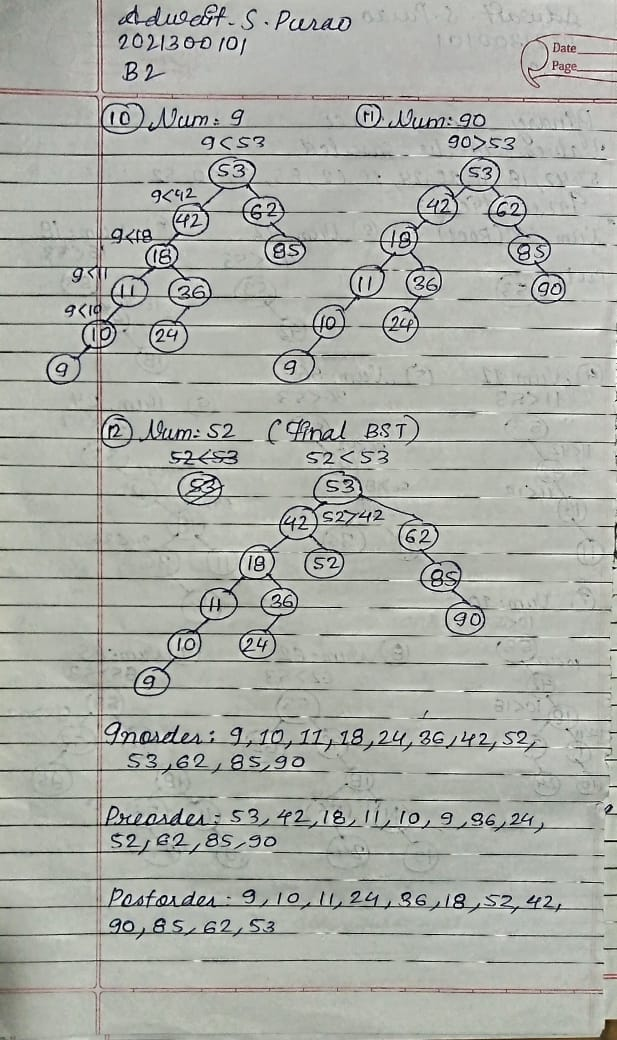 Adwait. S. Purao
2021300101
B2
Date
Page
10 Num: 9
9<53
53
9<42
42
62
9<18
18
85
9<11
11
36
9<10
10
24
9
11. Num: 90
90>53
53
42
62
18
85
11
36
90
10
24
9
12 Num: 52 (Final BST)
52<53 52<53
53
53
42 52>42
62
18
52
85
11
36
90
10
24
9
Inorder: 9, 10, 11, 18, 24, 36, 42, 52,
53, 62, 85, 90
Preorder: 53, 42, 18, 11, 10, 9, 36, 24,
52, 62, 85, 90
Postorder: 9, 10, 11, 24, 36, 18, 52, 42,
90, 85, 62, 53